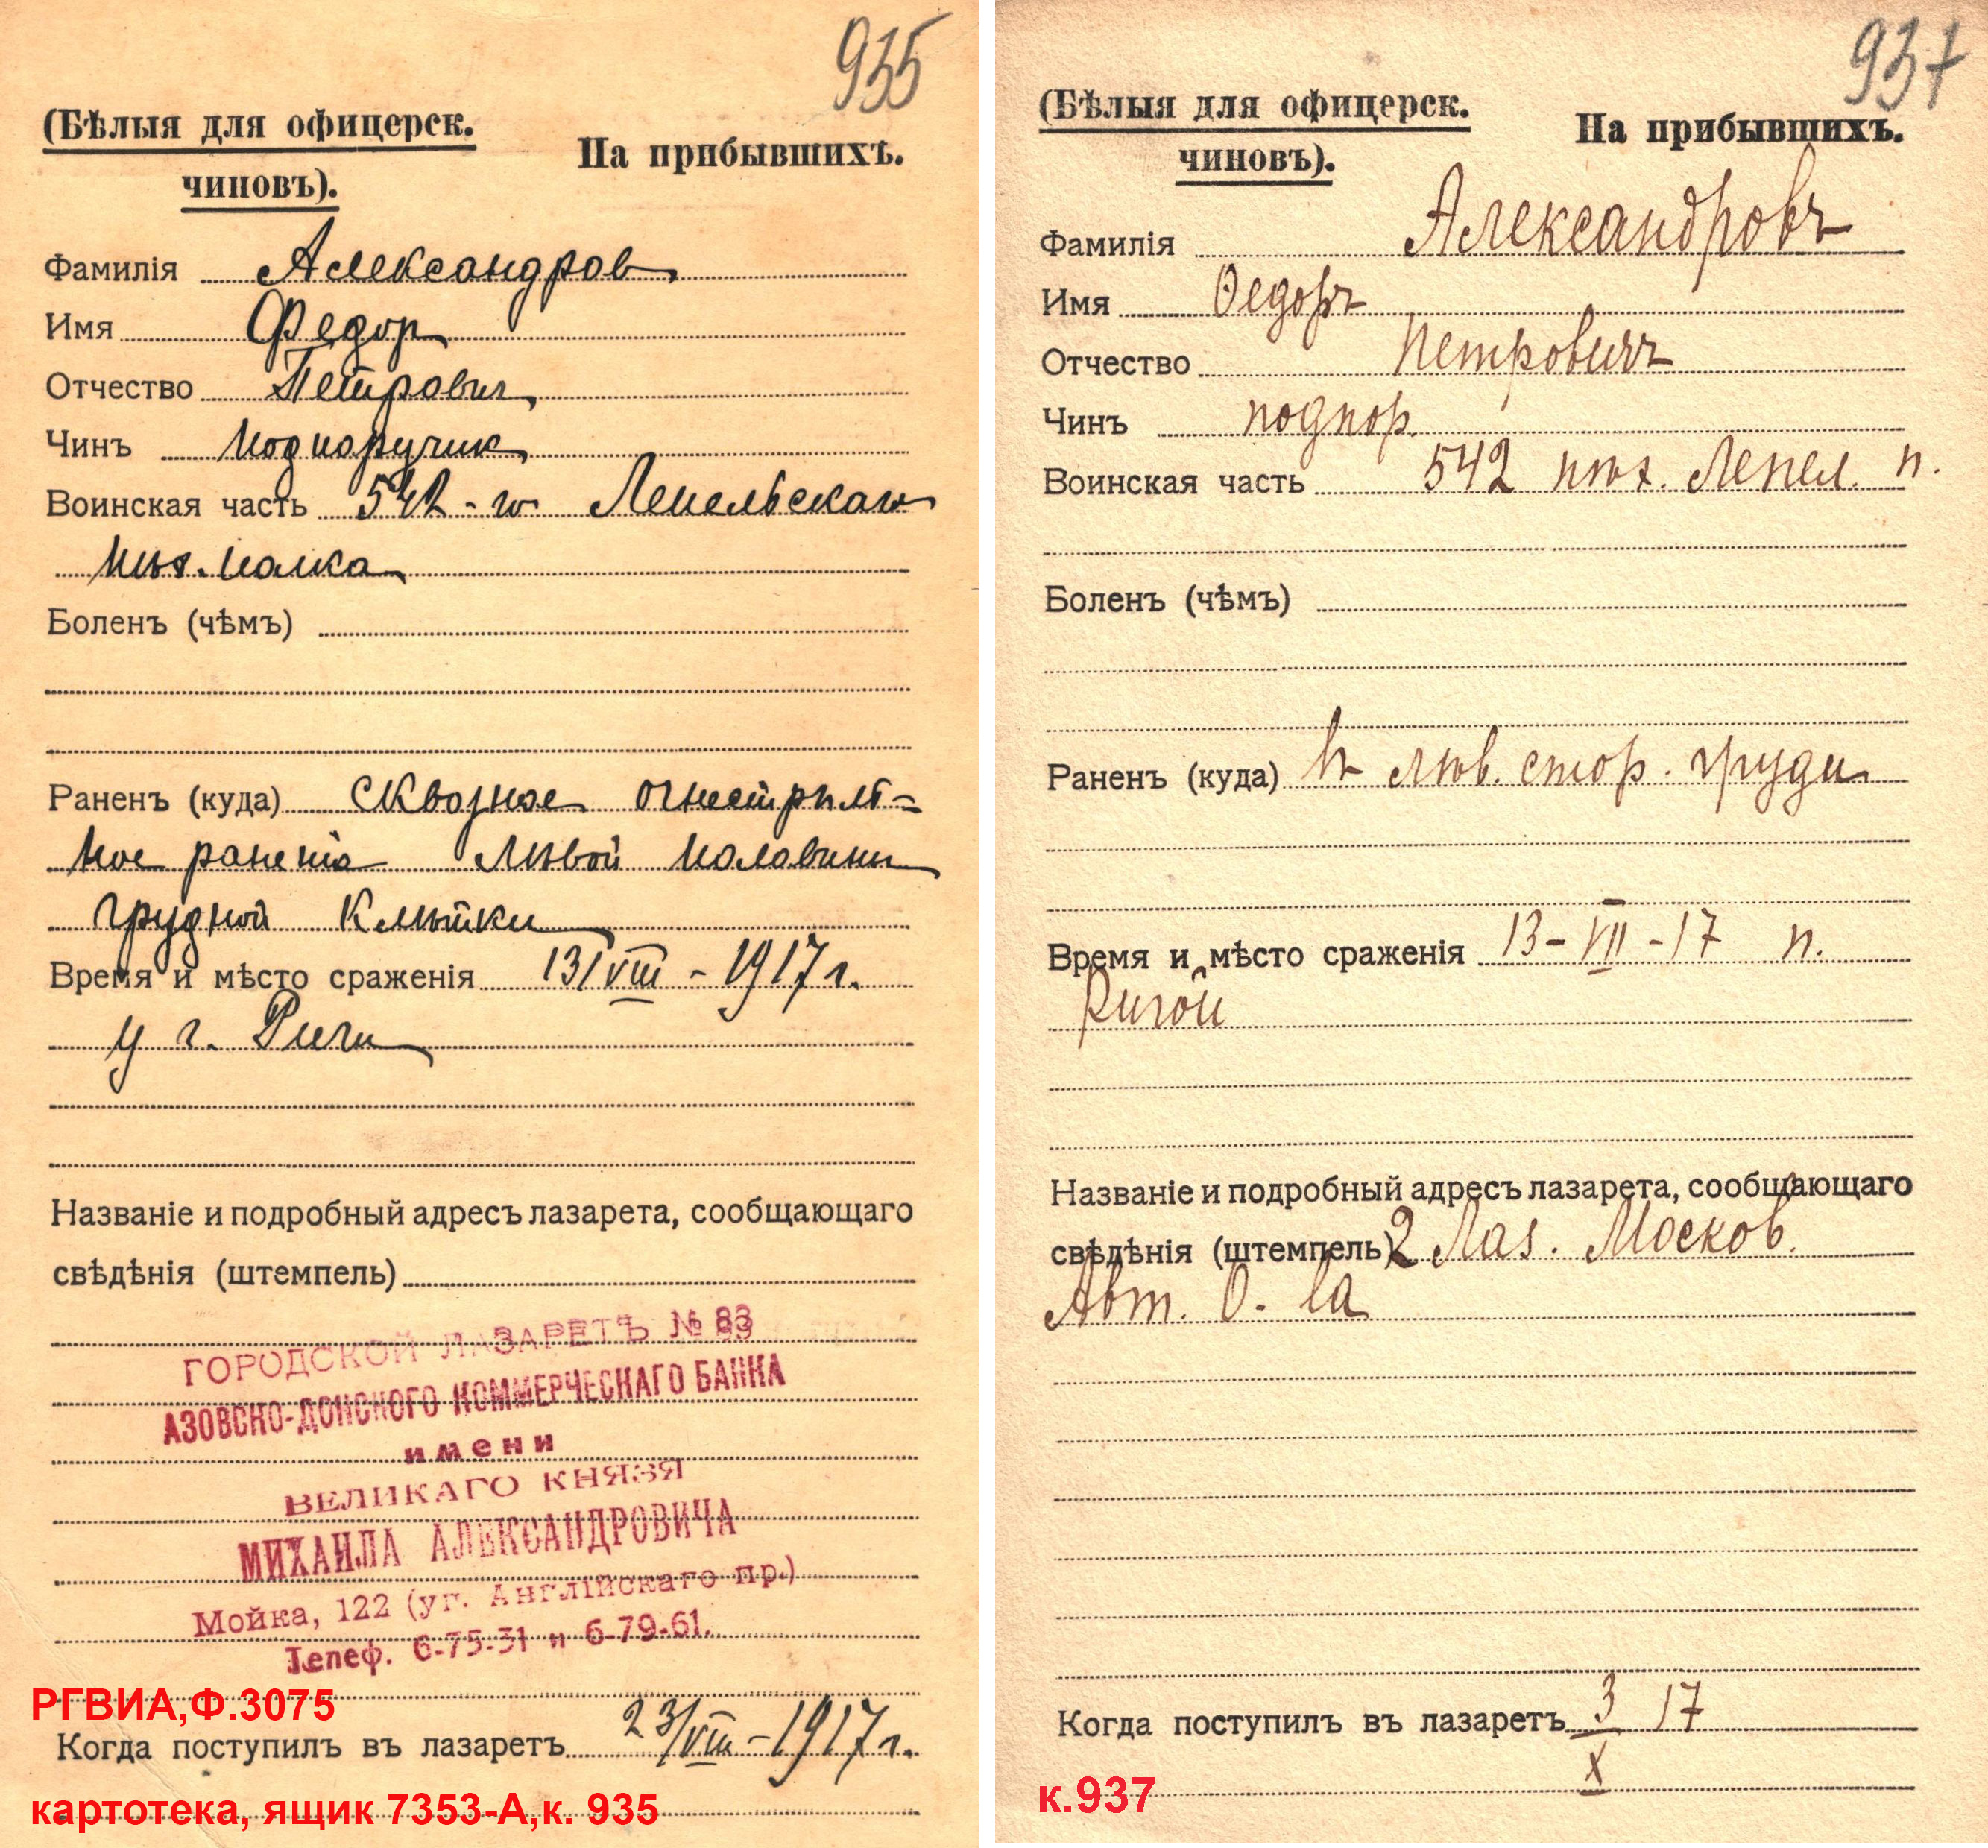 935
(Бѣлыя для офицерск.
чиновъ).
На прибывшихъ.
Фамилія Александров
Имя Федор
Отчество Петрович
Чинъ подпоручик
Воинская часть 542-го Лепельскаго
пѣх. полка
Боленъ (чѣмъ)
Раненъ (куда) сквозное огнестрѣль-
ное раненіе лѣвой половины
грудной клѣтки
Время и мѣсто сраженія 13/VIII - 1917 г.
у г. Риги
Названіе и подробный адресъ лазарета, сообщающаго
свѣдѣнія (штемпель)
ГОРОДСКОЙ ЛАЗАРЕТЪ № 83
АЗОВСКО-ДОНСКОГО КОММЕРЧЕСКАГО БАНКА
имени
ВЕЛИКАГО КНЯЗЯ
МИХАИЛА АЛЕКСАНДРОВИЧА
Мойка, 122 (уг. Англійскаго пр.)
Телеф. 6-75-31 и 6-79-61.
РГВИА,Ф.3075
Когда поступилъ въ лазаретъ 23/VIII - 1917 г.
картотека, ящик 7353-А,к. 935
937
(Бѣлыя для офицерск.
чиновъ).
На прибывшихъ.
Фамилія Александровъ
Имя Ѳедоръ
Отчество Петровичъ
Чинъ подпор.
Воинская часть 542 пѣх. Лепел. п.
Боленъ (чѣмъ)
Раненъ (куда) въ лѣв. стор. груди
Время и мѣсто сраженія 13-VII-17 п.
Ригой
Названіе и подробный адресъ лазарета, сообщающаго
свѣдѣнія (штемпель) 2 Лаз. Москов.
Авт. О-ва
Когда поступилъ въ лазаретъ 3/X 17
к.937